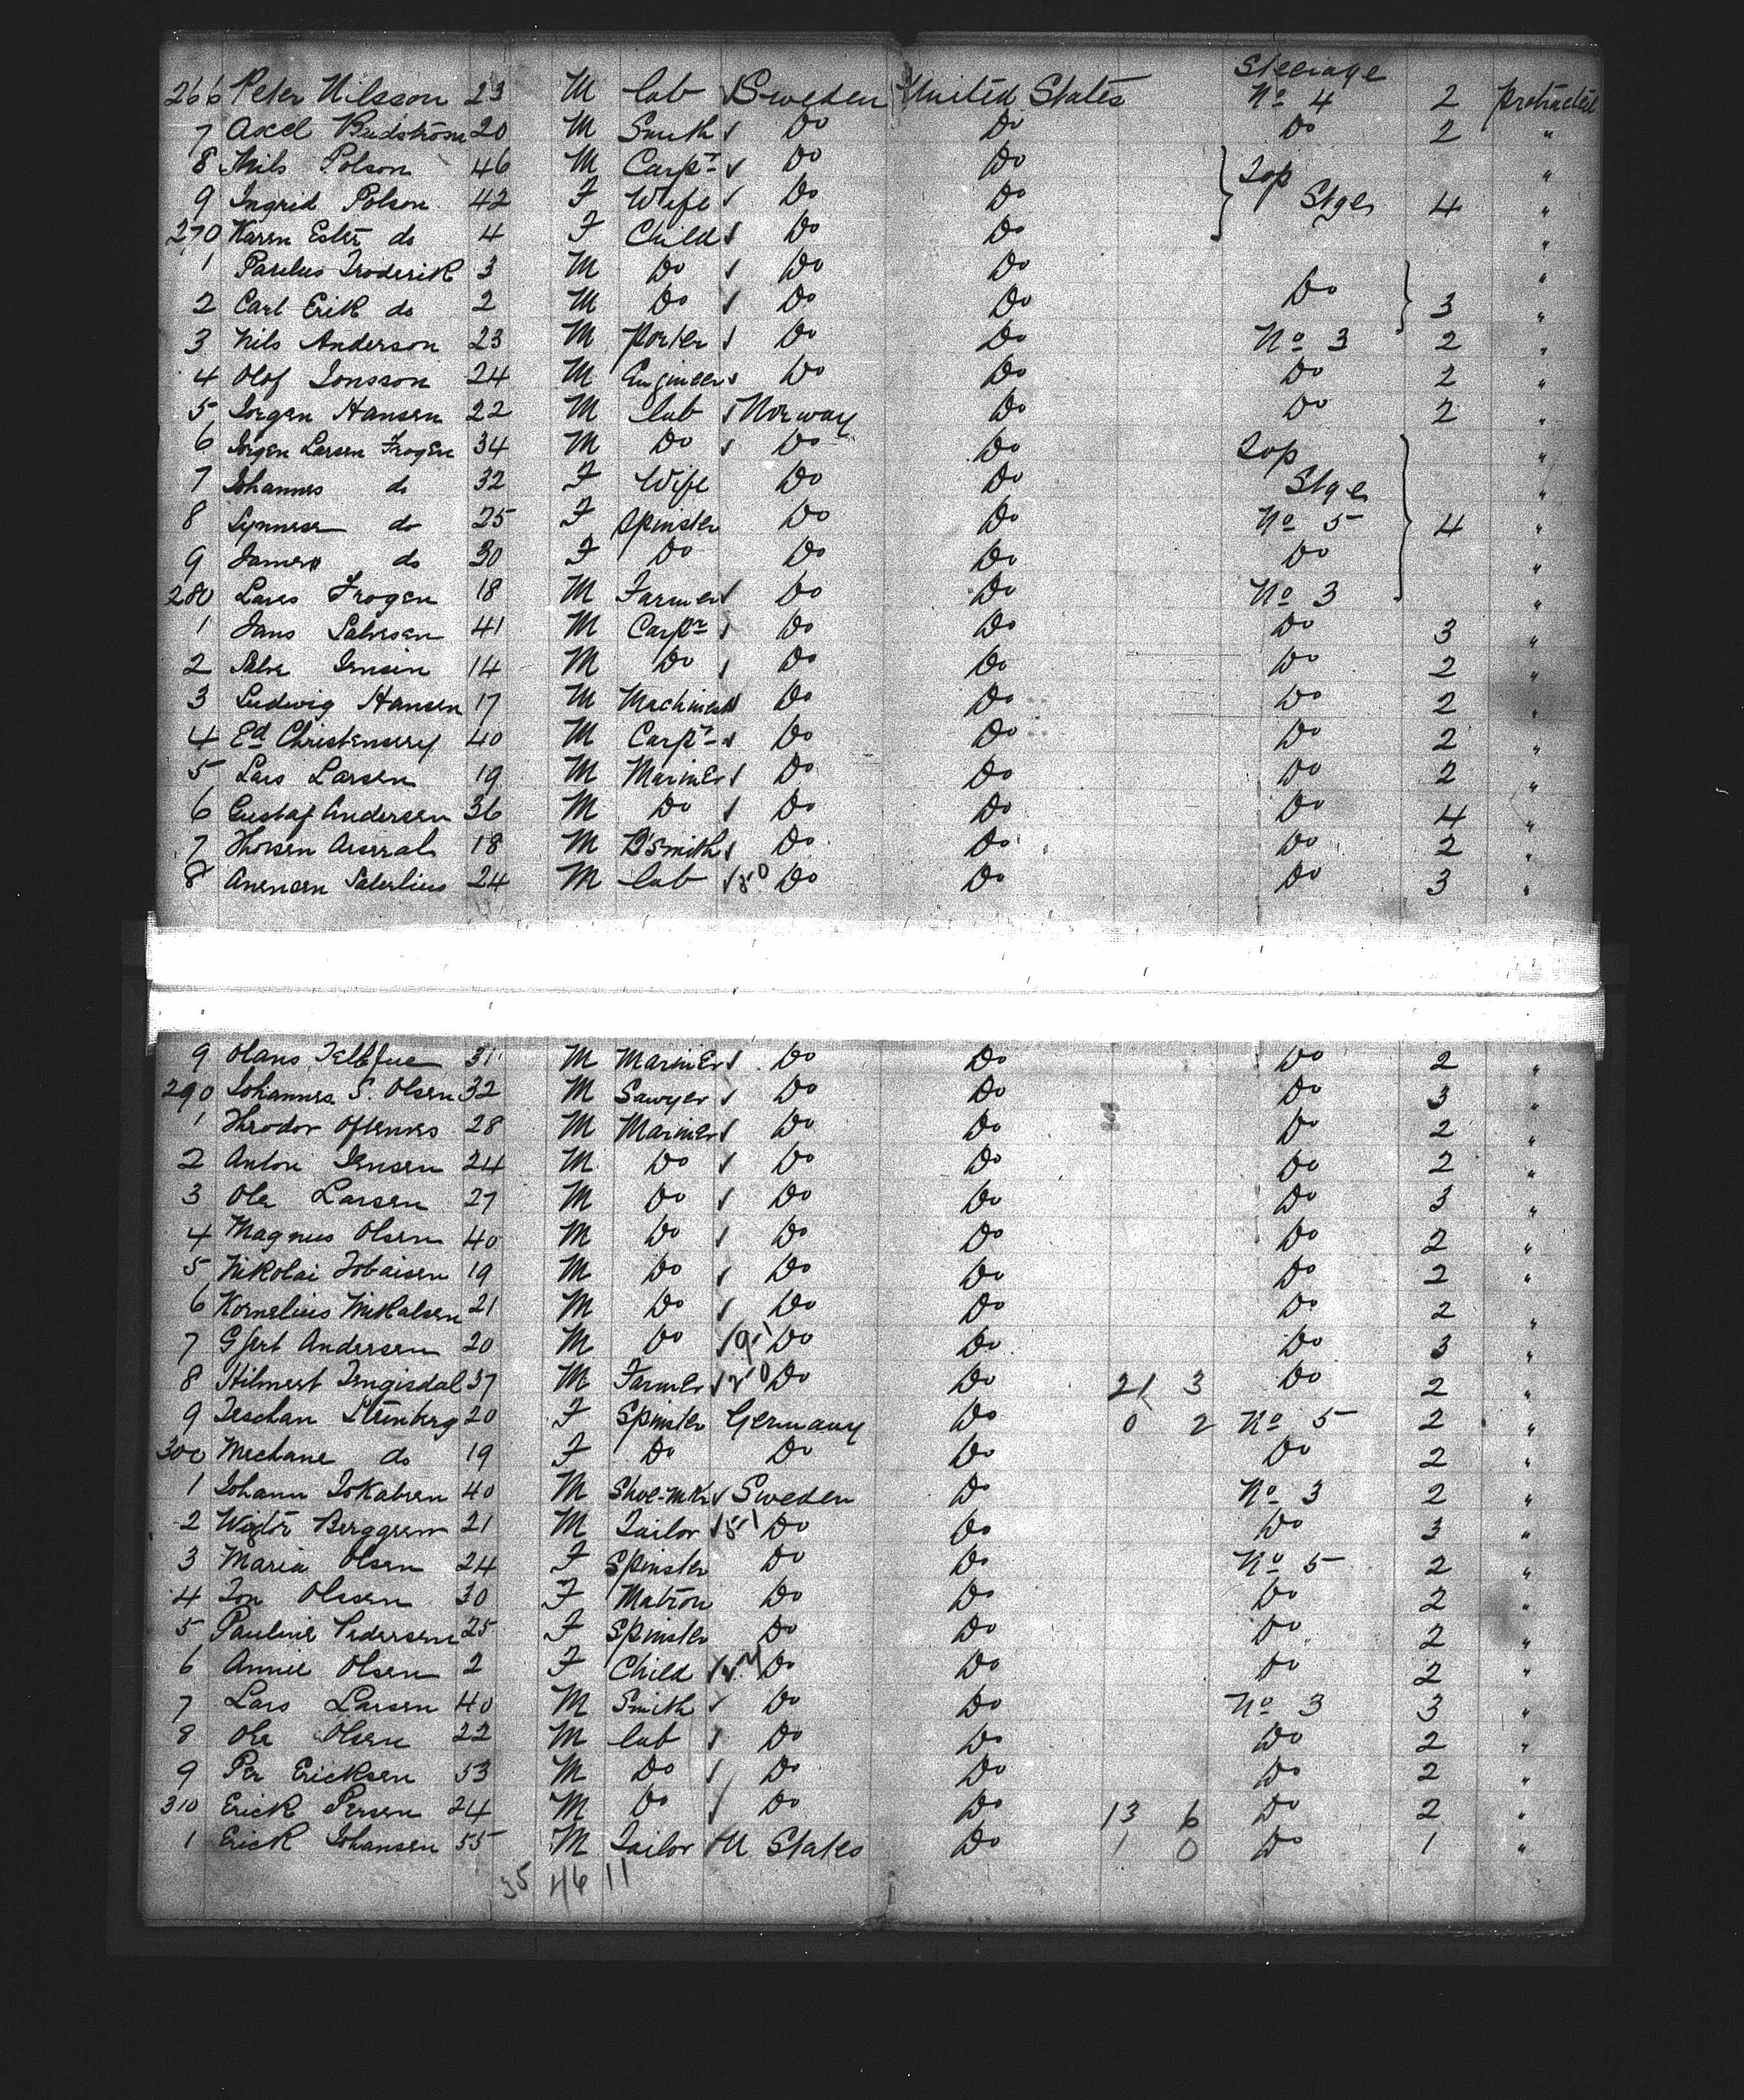 Steerage
266 Peter Nilsson 23 M lab Sweden United States No 4 2 protracted
7 Axel 20 M Smith Do Do Do 2 "
8 Nils Polson 46 M Carpr Do Do Top "
9 Ingrid Polson 42 F Wife Do Do Stge 4 "
270 Karen Ester do 4 F Child Do Do "
1 3 M Do Do Do "
2 Carl Erik do 2 M Do Do Do Do 3 "
3 Nils Anderson 23 M porter Do Do No 3 2 "
4 Olof Jonsson 24 M Engineer Do Do Do 2 "
5 Jorgen Hansen 22 M lab Norway Do Do 2 "
6 Jorgen Larsen Frogen 34 M Do Do Do Top "
7 Johannes do 32 F Wife Do Do Stge "
8 do 25 F Spinster Do Do No 5 4 "
9 do 30 F Do Do Do Do "
280 Lars Frogen 18 M Farmer Do Do No 3 "
1 Jans Salvesen 41 M Carpr Do Do Do 3 "
2 14 M Do Do Do Do 2 "
3 Ludwig Hansen 17 M Machinest Do Do Do 2 "
4 Ed 40 M Carpr Do Do Do 2 "
5 Lars Larsen 19 M Mariner Do Do Do 2 "
6 Gustaf Andersen 36 M Do Do Do Do 4 "
7 18 M B'Smith Do Do Do 2 "
8 24 M lab Do Do Do 3 "
9 Olaus 31 M Mariner Do Do Do 2 "
290 Johannes S. Olsen 32 M Sawyer Do Do Do 3 "
1 28 M Mariner Do Do Do 2 "
2 Anton Jensen 24 M Do Do Do Do 2 "
3 Ole Larsen 27 M Do Do Do Do 3 "
4 Magnus Olsen 40 M Do Do Do Do 2 "
5 Nikolai Tobaisen 19 M Do Do Do Do 2 "
6 Kornelius Nikalsen 21 M Do Do Do Do 2 "
7 Gjert Andersen 20 M Do Do Do Do 3 "
8 37 M Farmer Do Do 21 3 Do 2 "
9 Steinberg 20 F Spinster Germany Do 0 2 No 5 2 "
300 Mechane do 19 F Do Do Do Do 2 "
1 Johann 40 M Shoe-mkr Sweden Do No 3 2 "
2 Berggren 21 M Tailor Do Do Do 3 "
3 Maria Olsen 24 F Spinster Do Do No 5 2 "
4 Jon Olsen 30 F Matron Do Do Do 2 "
5 Pauline Pedersen 25 F Spinster Do Do Do 2 "
6 Annie Olsen 2 F Child Do Do Do 2 "
7 Lars Larsen 40 M Smith Do Do No 3 3 "
8 Ole Olsen 22 M lab Do Do Do 2 "
9 Per Ericksen 53 M Do Do Do Do 2 "
310 Erick Persen 24 M Do Do Do 13 6 Do 2 "
1 Erick Johansen 55 M Tailor U States Do 1 0 Do 1 "
35 46 11